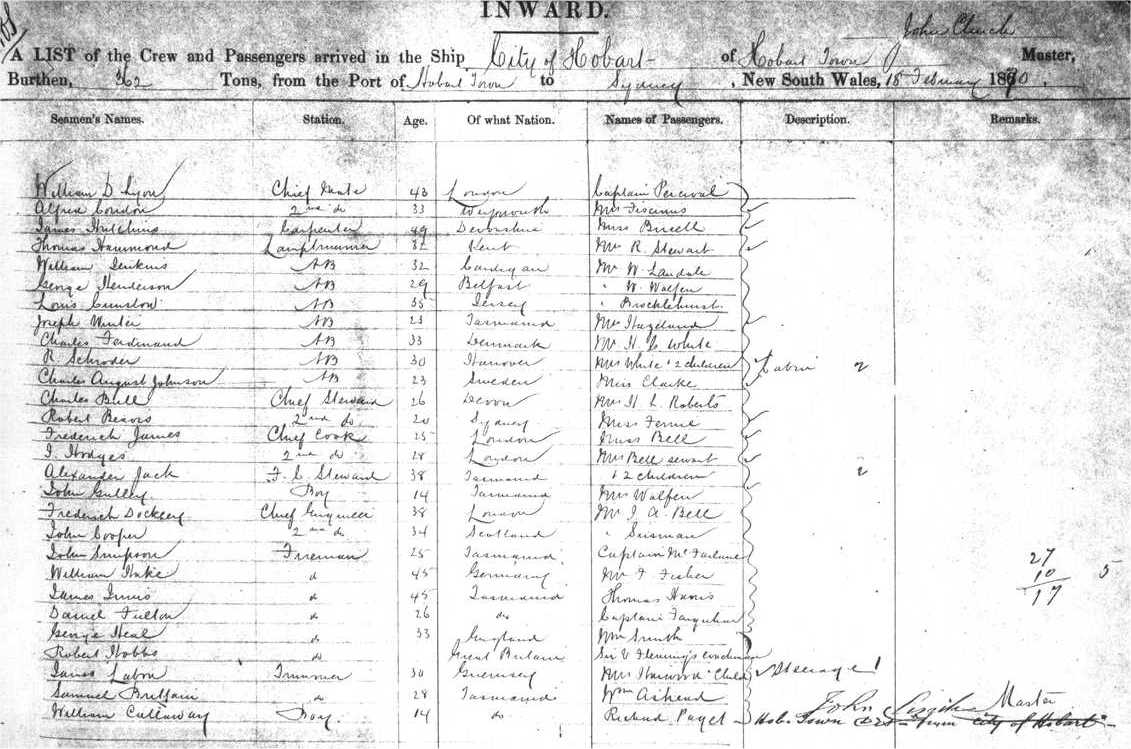 INWARD.
John Clinch
A LIST of the Crew and Passengers arrived in the Ship City of Hobart of Hobart Town Master,
Burthen, 362 Tons, from the Port of Hobart Town to Sydney, New South Wales, 18 February 1870.
Seamen's Names. Station. Age. Of what Nation. Names of Passengers. Description. Remarks.
William D Lyon Chief Mate 43 London Captain Percival
Alfred Condon 2nd do 33 Weymouth
James Hutchins Carpenter 49 Devonshire Miss
Thomas Hammond Lamptrimmer 32 Kent Mr R. Stewart
William Jenkins AB 32 Cardigan Mr W. Landale
George Henderson AB 29 Belfast " W. Walfen
Louis AB 35 Jersey " Brocklehurst
Joseph Winter AB 23 Tasmania
Charles Ferdinand AB 33 Denmark Mr H. C. White
R Schroder AB 30 Hanover Mrs White & 2 children Cabin 2
Charles August Johnson AB 23 Sweden Miss Clarke
Charles Bull Chief Steward 26 Devon Mrs H L. Roberts
Robert 2nd do 20 Sydney Miss
Frederick James Chief Cook 25 London Miss Bell
J. Hodges 2nd do 28 London Mrs Bell servant
Alexander Jack F. C. Steward 38 Tasmania & 2 children 2
John Gulley Boy 14 Tasmania Mrs Walfen
Frederick Chief Engineer 38 London Mr J. A. Bell
John Cooper 2nd do 34 Scotland "
John Simpson Fireman 25 Tasmania Captain McFarlane 27
William do 45 Germany Mr F Fisher 10 5
James Innis do 45 Tasmania Thomas 17
Daniel Fulton do 26 do Captain Farquhar
George Neal do 33 England Wm Smith
Robert Hobbs do Great Britain Sir V Fleming's coachman
James Labon Trimmer 30 Guernsey Mrs Child Steerage 1
Samuel Brittain do 28 Tasmania Wm
William Callaway Boy. 14 do Richard Paget John Master
Hob. Town from City of Hobart